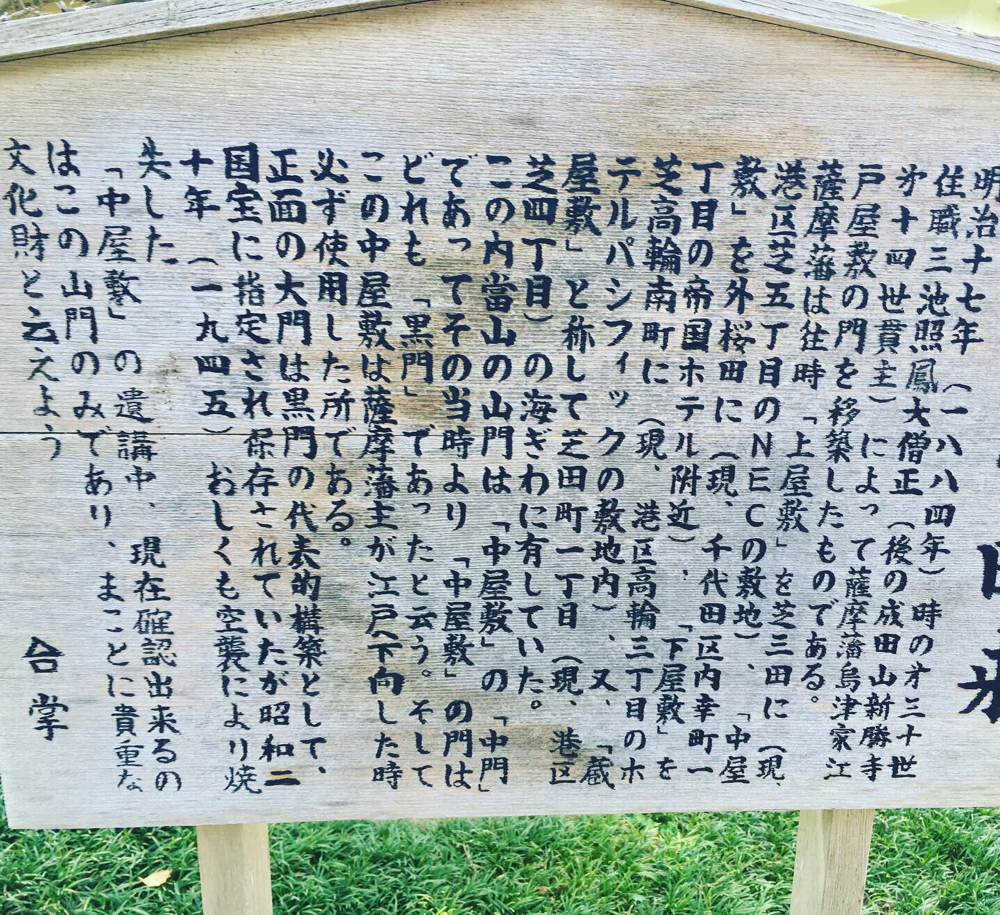 由来
明治十七年(一八八四年)時の第三十世
住職三池照鳳大僧正(後の成田山新勝寺
第十四世貫主)によって薩摩藩島津家江
戸屋敷の門を移築したものである。
薩摩藩は往時「上屋敷」を芝三田に(現、
港区芝五丁目のNECの敷地)、「中屋
敷」を外桜田に(現、千代田区内幸町一
丁目の帝国ホテル附近)、「下屋敷」を
芝高輪南町に(現、港区高輪三丁目のホ
テルパシフィックの敷地内)、又、「蔵
屋敷」と称して芝田町一丁目(現、港区
芝四丁目)の海ぎわに有していた。
この内當山の山門は「中屋敷」の「中門」
であってその当時より「中屋敷」の門は
どれも「黒門」であったと云う。そして
この中屋敷は薩摩藩主が江戸へ下向した時
必ず使用した所である。
正面の大門は黒門の代表的構築として、
国宝に指定され保存されていたが昭和二
十年(一九四五)おしくも空襲により焼
失した。
「中屋敷」の遺講中、現在確認出来るの
はこの山門のみであり、まことに貴重な
文化財と云えよう
合掌